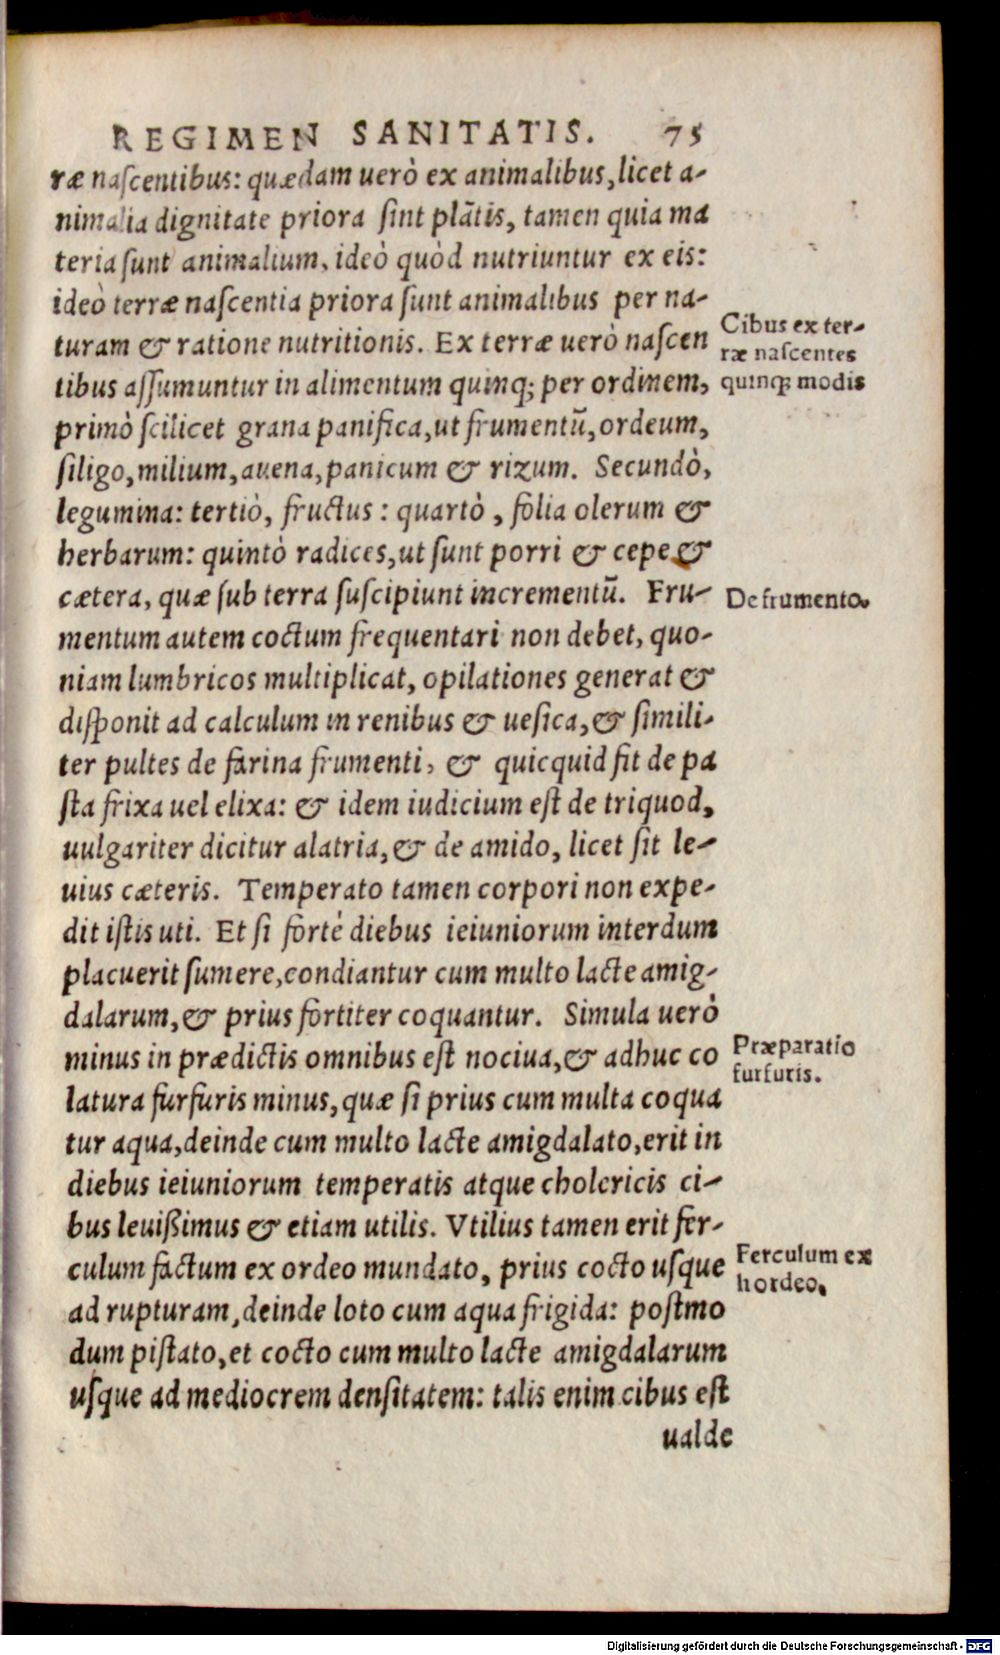 REGIMEN SANITATIS. 75
ræ nascentibus: quædam uerò ex animalibus, licet a-
nimalia dignitate priora sint plātis, tamen quia ma
teria sunt animalium, ideò quòd nutriuntur ex eis:
ideò terræ nascentia priora sunt animalibus per na-
turam & ratione nutritionis. Ex terræ uerò nascen
Cibus ex ter-
ræ nascentes
quinq; modis
tibus assumuntur in alimentum quinq; per ordinem,
primò scilicet grana panifica, ut frumentū, ordeum,
siligo, milium, auena, panicum & rizum. Secundò,
legumina: tertiò, fructus: quartò, folia olerum &
herbarum: quintò radices, ut sunt porri & cepe &
cætera, quæ sub terra suscipiunt incrementū. Fru-
De frumento.
mentum autem coctum frequentari non debet, quo-
niam lumbricos multiplicat, opilationes generat &
disponit ad calculum in renibus & uesica, & simili-
ter pultes de farina frumenti, & quicquid fit de pa
sta frixa uel elixa: & idem iudicium est de triquod,
uulgariter dicitur alatria, & de amido, licet sit le-
uius cæteris. Temperato tamen corpori non expe-
dit istis uti. Et si fortè diebus ieiuniorum interdum
placuerit sumere, condiantur cum multo lacte amig-
dalarum, & prius fortiter coquantur. Simula uerò
minus in prædictis omnibus est nociua, & adhuc co
Præparatio
furfuris.
latura furfuris minus, quæ si prius cum multa coqua
tur aqua, deinde cum multo lacte amigdalato, erit in
diebus ieiuniorum temperatis atque cholericis ci-
bus leuißimus & etiam utilis. Vtilius tamen erit fer-
culum factum ex ordeo mundato, prius cocto usque
Ferculum ex
hordeo.
ad rupturam, deinde loto cum aqua frigida: postmo
dum pistato, et cocto cum multo lacte amigdalarum
usque ad mediocrem densitatem: talis enim cibus est
ualde
Digitalisierung gefördert durch die Deutsche Forschungsgemeinschaft - DFG